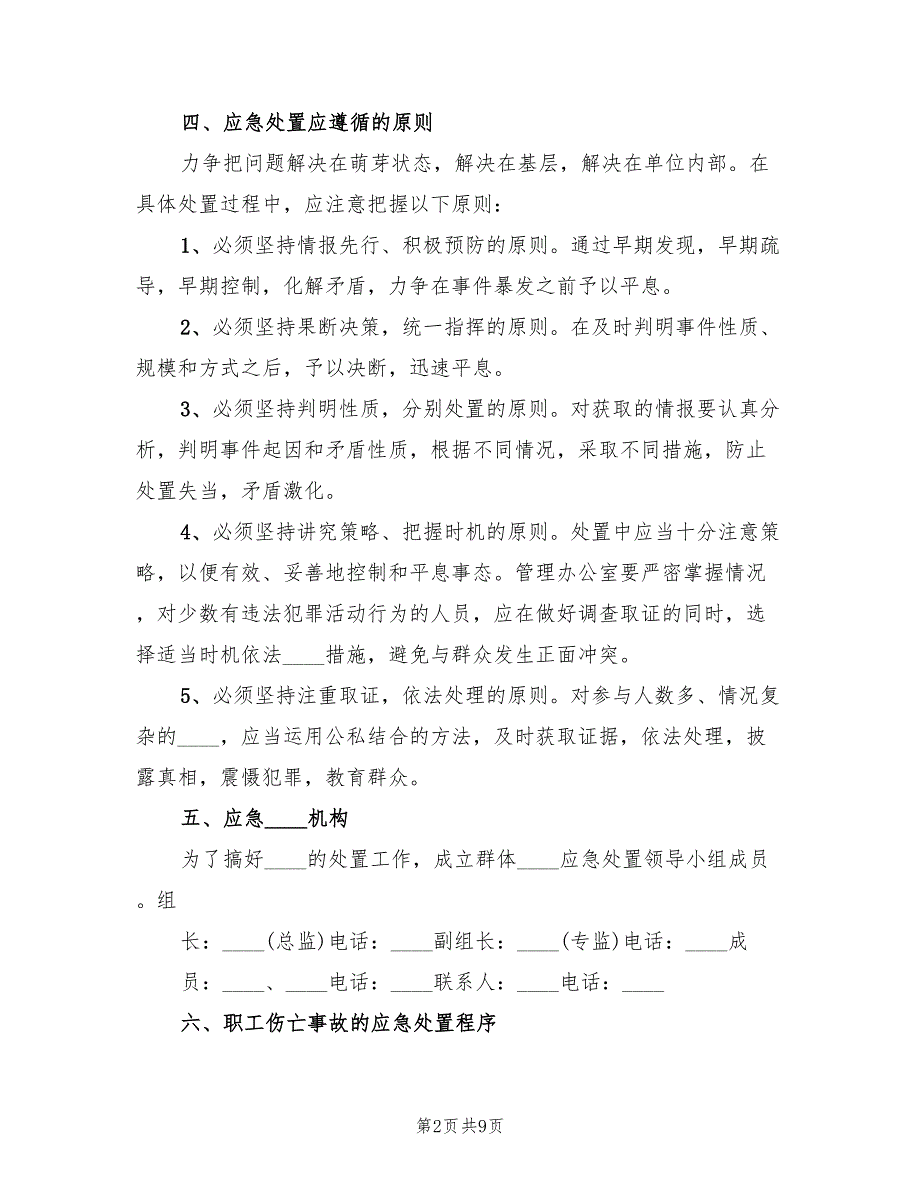 四、应急处置应遵循的原则
力争把问题解决在萌芽状态，解决在基层，解决在单位内部。在
具体处置过程中，应注意把握以下原则：
1、必须坚持情报先行、积极预防的原则。通过早期发现，早期疏
导，早期控制，化解矛盾，力争在事件暴发之前予以平息。
2、必须坚持果断决策，统一指挥的原则。在及时判明事件性质、
规模和方式之后，予以决断，迅速平息。
3、必须坚持判明性质，分别处置的原则。对获取的情报要认真分
析，判明事件起因和矛盾性质，根据不同情况，采取不同措施，防止
处置失当，矛盾激化。
4、必须坚持讲究策略、把握时机的原则。处置中应当十分注意策
略，以便有效、妥善地控制和平息事态。管理办公室要严密掌握情况
，对少数有违法犯罪活动行为的人员，应在做好调查取证的同时，选
择适当时机依法____措施，避免与群众发生正面冲突。
5、必须坚持注重取证，依法处理的原则。对参与人数多、情况复
杂的____，应当运用公私结合的方法，及时获取证据，依法处理，披
露真相，震慑犯罪，教育群众。
五、应急____机构
为了搞好____的处置工作，成立群体____应急处置领导小组成员
。组
长：____(总监)电话：____副组长：____(专监)电话：____成
员：____、____电话：____联系人：____电话：____
六、职工伤亡事故的应急处置程序
第2页共9页